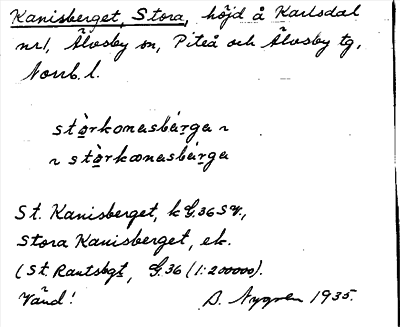 Kanisberget, Stora, höjd å Karlsdal
nr1, Älvsby sn, Piteå och Älvsby tg,
Norrb. l.
stòrkanasbár̩ga ~
~ stòrkænasbár̩ga
St. Kanisberget, k G.36 SV.,
Stora Kanisberget, ek.
(St. Rantsbgt, G.36 (1:200000).
Vänd! A. Nygren 1935.